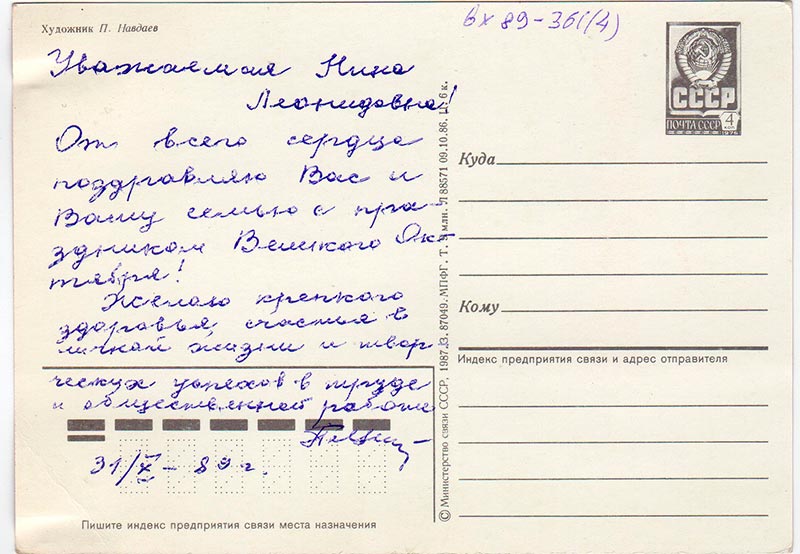 Художник П. Навдаев
вх 89-361(4)
Уважаемая Нина
Леонидовна!
От всего сердца
поздравляю Вас и
Вашу семью с пра-
здником Великого Ок-
тября!
Желаю крепкого
здоровья, счастья в
личной жизни и твор-
ческих успехов в труде
и общественной работе
31/X - 89 г.
Пишите индекс предприятия связи места назначения
© Министерство связи СССР, 1987. З. 87049. МПФГ. Т. млн. Л 88571 09.10.86. Ц. 6 к.
СССР
ПОЧТА СССР 4 КОП
1976
Куда
Кому
Индекс предприятия связи и адрес отправителя